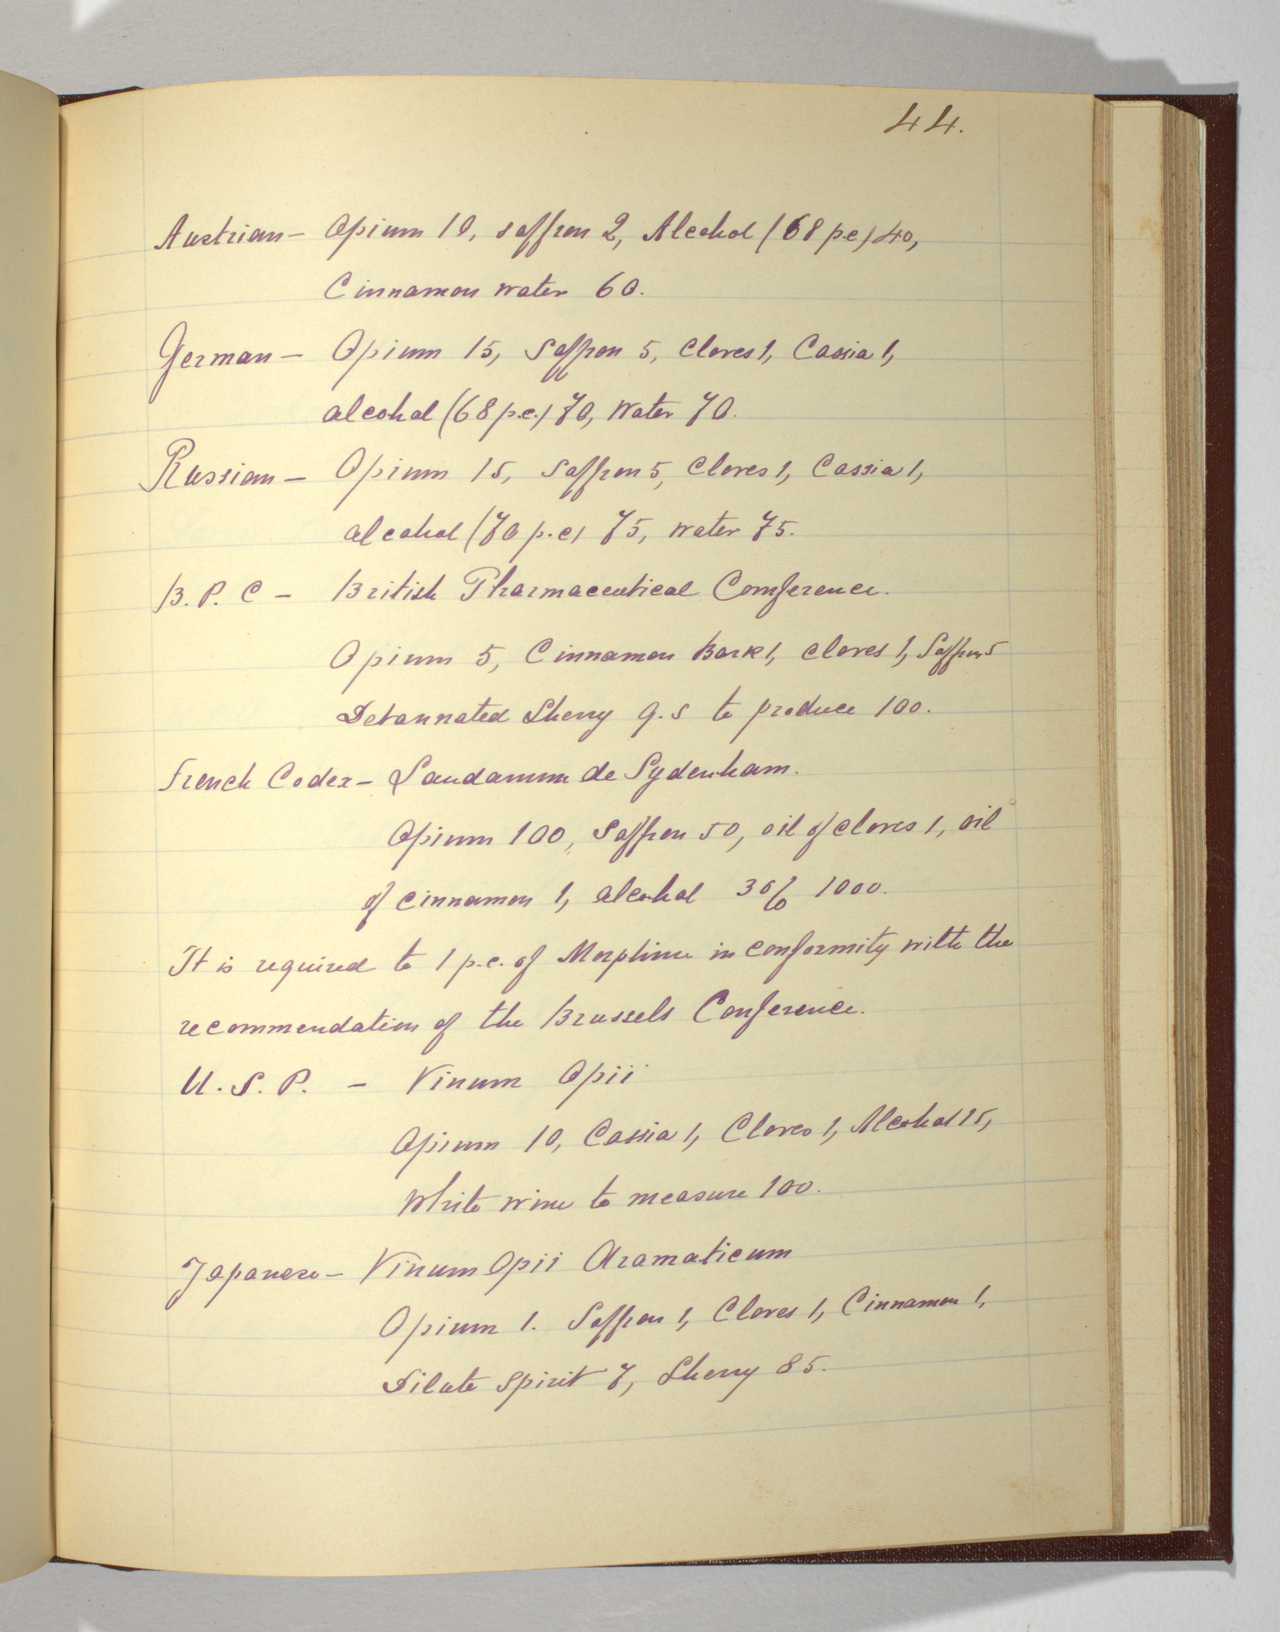 44.
Austrian — Opium 10, saffron 2, Alcohol (68 p.c) 40,
Cinnamon water 60.
German — Opium 15, Saffron 5, Cloves 1, Cassia 1,
alcohol (68 p.c.) 70, Water 70.
Russian — Opium 15, Saffron 5, Cloves 1, Cassia 1,
alcohol (70 p.c) 75, water 75.
B. P. C — British Pharmaceutical Conference.
Opium 5, Cinnamon Bark 1, Cloves 1, Saffron 5
Detannated Sherry q.s to produce 100.
French Codex — Laudanum de Sydenham.
Opium 100, Saffron 50, oil of cloves 1, oil
of cinnamon 1, alcohol 30% 1000.
It is required to 1 p.c. of Morphine in conformity with the
recommendation of the Brussels Conference.
U. S. P. — Vinum Opii
Opium 10, Cassia 1, Cloves 1, Alcohol 15,
White wine to measure 100.
Japanese — Vinum Opii Aromaticum
Opium 1. Saffron 1, Cloves 1, Cinnamon 1,
Dilute Spirit 7, Sherry 85.